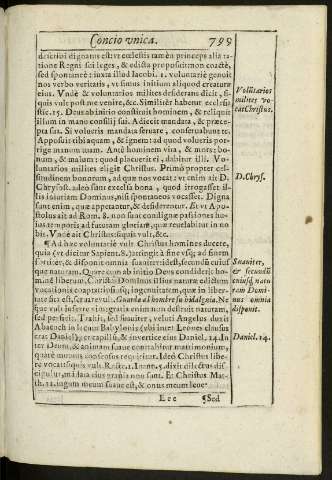 Concio vnica. 799
dictioni
sed spontanè: iuxta illud Iacobi. 1. voluntariè genuit
nos verbo veritatis, vt simus initium aliquod creaturæ
eius. Vnde & voluntarios milites desiderans dicit, si
quis vult post me venire, &c. Similiter habetur ecclesia
stic. 15. Deus ab initio constituit hominem, & reliquit
illum in manu consilij sui. Adiecit mandata, & præce-
pta sua. Si volueris mandata seruare, conseruabunt te.
Apposuit tibi aquam, & ignem: ad quod volueris por-
rige manum tuam. Ante hominem vita, & mors: bo-
num, & malum: quod placuerit ei, dabitur illi. Vo-
luntarios milites elegit Christus. Primò propter cel-
situdinem bonorum, ad quæ nos vocat: vt enim ait D.
Chrysost. adeò sunt excelsa bona, quod irrogasset il-
lis iniuriam Dominus, nisi spontaneos vocasset. Dig
na sunt enim, quæ appetantur, & desiderentur. Et vt Apo-
stolus ait ad Rom. 8. non sunt condignæ passiones ho
ius temporis ad futuram gloriam, quæ reuelabitur in no
bis. Vnde ait Christus: siquis vult, &c.
¶ Ad hæc voluntariè vult Christus homines ducere,
quia (vt dicitur Sapient. 8.) attingit à fine vsq; ad finem
fortiter, & disponit omnia suauiter: idest, secundū cuius
que naturam. Quare cum ab initio Deus condiderit ho-
minē liberum, Christi Domini
vocationis captiuitatis iusq; ingenuitatem, quæ in liber-
tate sita est, seruare vult. Guarda al hombre su hidalguia. Ne
que vult inferre
sed perficere. Traxit, sed suauiter, veluti Angelus duxit
Abacuch in lacum Babylonis (vbi inter Leones clausus
erat Daniel) per capillum, & in vertice eius Daniel. 14. In
ter Deum, & animam suaue contrahitur matrimonium,
quare mutuus consensus requiritur. Ideò Christus libe-
re vocat: siquis vult. 5. dixit dilectus dis
cipulus, mādata eius grauia non sunt. Et Christus Mat-
th. 11. iugum meum suaue est, & onus meum leue.
Eee ¶ Sed
Volūtarios
milites vo-
cat Christus.
D. Chrys.
Suauiter,
er secundū
cuiusq; natu
ram Domi-
nus omnia
disponit.
Daniel. 14.